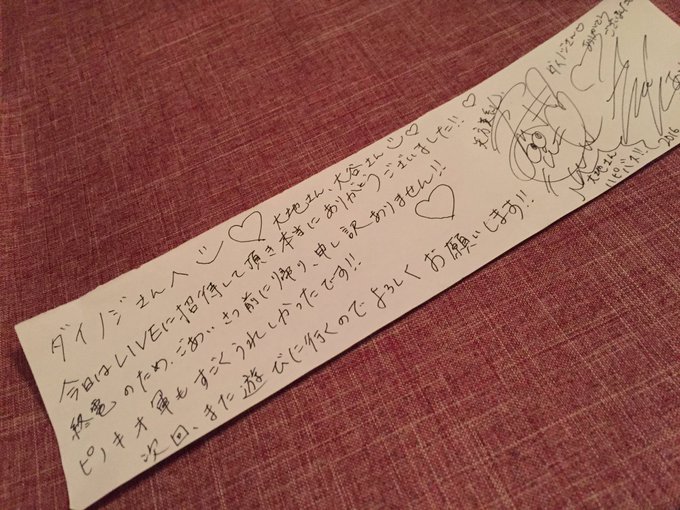 ダイノジさんへ 大地さん、大谷さん
今日はLIVEに招待して頂き本当にありがとうございました!!
終電のため、ごあいさつ前に帰り、申し訳ありません!!
ピノキオ軍もすごくうれしかったです!!
次回、また遊びに行くのでよろしくお願いします!!
ダイノジさん
ありがとう
ございました
大地さん
ハピバス!!
2016